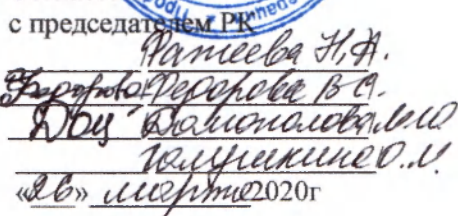 с председателем РК
Фатеева Н.А.
Федорова Федорова В.А.
Доц
Голушкина О.М.
«26» марта 2020г